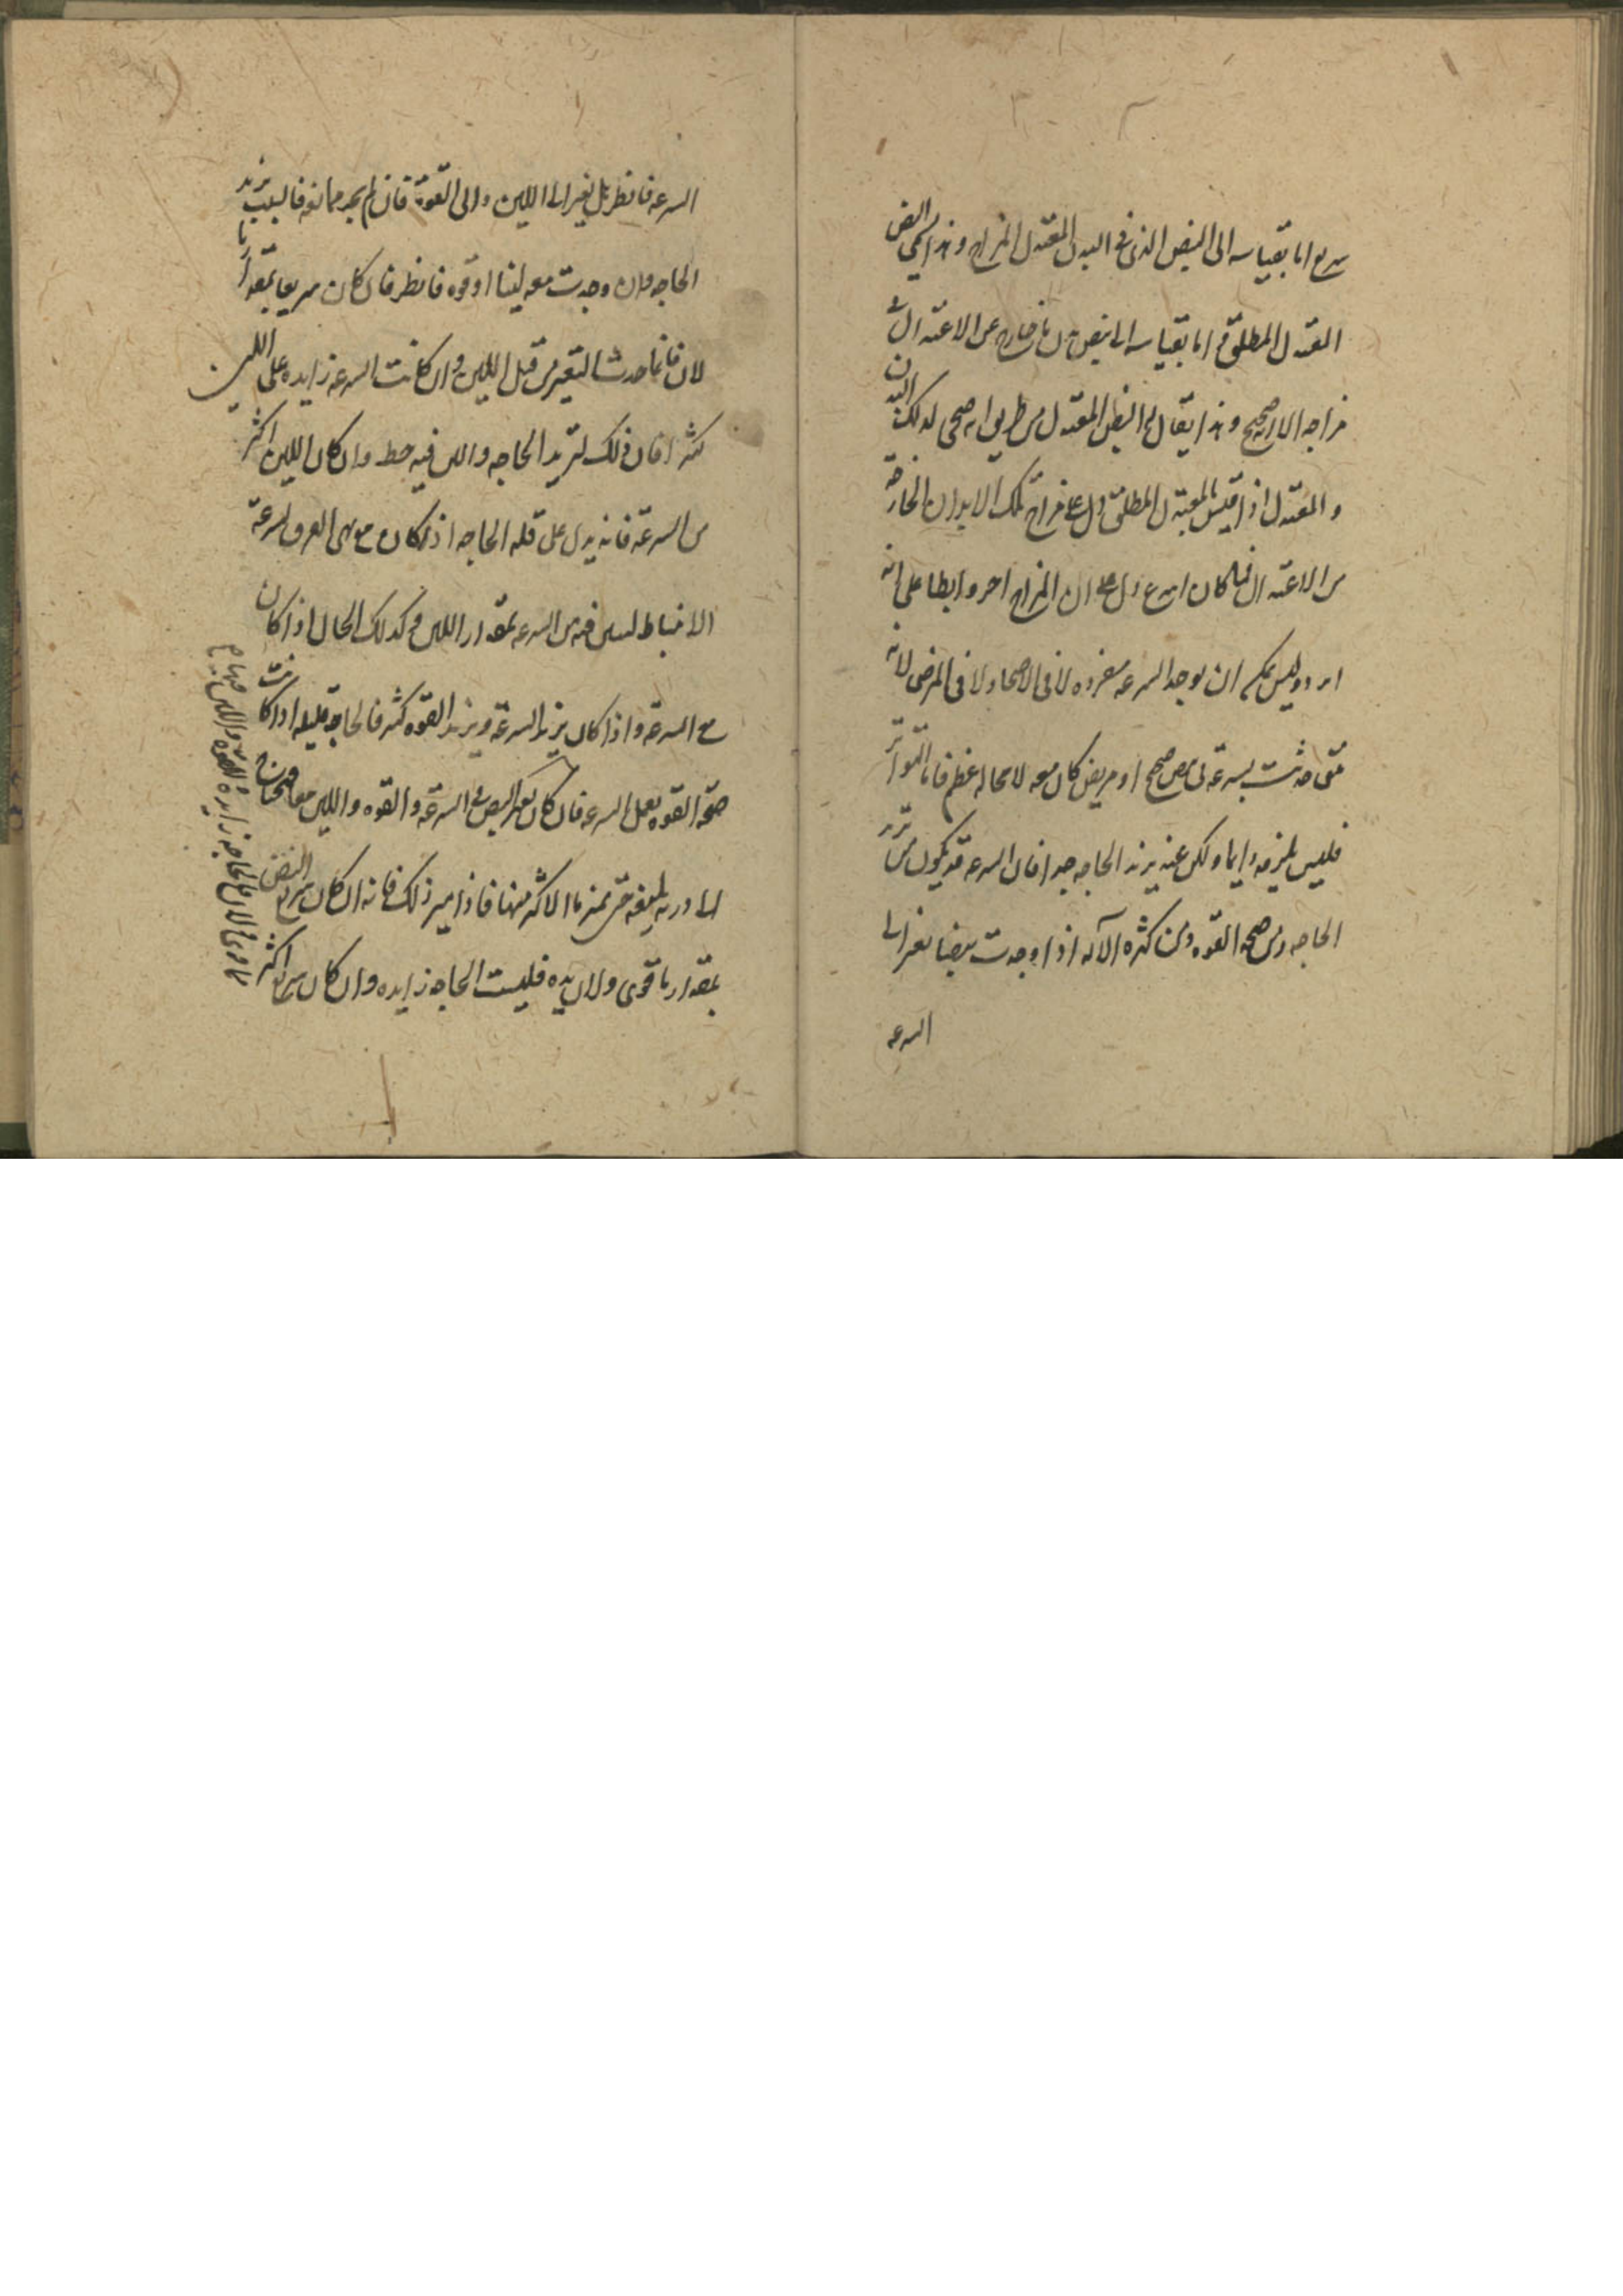 سريع اما بقياسه الى النبض الذى فى البدن المعتدل المزاج وهذا يسمى النبض
المعتدل المطلق و اما بقياسه الى نبض بدن ما خارج عن الاعتدال فى
مزاجه الا انه صحيح وهذا يقال له النبض المعتدل من طريق انه صحى لذلك البدن
والمعتدل اذا قيس بالمعتدل المطلق دل على مزاج تلك الابدان الخارجة
من الاعتدال فما كان اسرع دل على ان المزاج احر وابطا على انه
ابرد وليس يمكن ان يوجد السرعه مفرده لا فى الاصحاء ولا فى المرضى لانه
متى حدثت بسرعة نبض صحيح او مريض كان معه لا محاله عظم فاما التواتر
فليس يلزمه دايما ولكن عند يزيد الحاجه جدا فان السرعه قد يكون من تزيد
الحاجه ومن صحه القوه ومن كثره الآله اذا وجدت نبضا تغير الى
السرعه
السرعه فانظر هل تغير الى اللين والى القوة فان لم يجد معه فالسبب يزيد
الحاجه وان وجدت معه لينا او قوه فانظر فان كان سريعا بمقدار ما
لان فانما حدث التغير من قبل اللين وان كانت السرعه زايده على اللين
كثيرا فان ذلك لتزيد الحاجه واللين فيه حط وان كان اللين اكثر
من السرعة فانه يدل على قله الحاجه اذ كان مع العرق لسرعة
الانبساط ليس فيه من السرعه بمقدار اللين وكذلك الحال اذا كان
مع السرعة واذا كان يزيد السرعة ويزيد القوه كثير فالحاجة قليله اذا كانت
صحة القوه يعمل السرعه فان كان تغير النبض فى السرعة والقوه واللين معا
الى حتى الاكثر منها فاذا ميز ذلك فانه ان كان سريع النبض
بمقدار ما قوى ولان يده فليست الحاجه زايده وان كان سريع اكثر